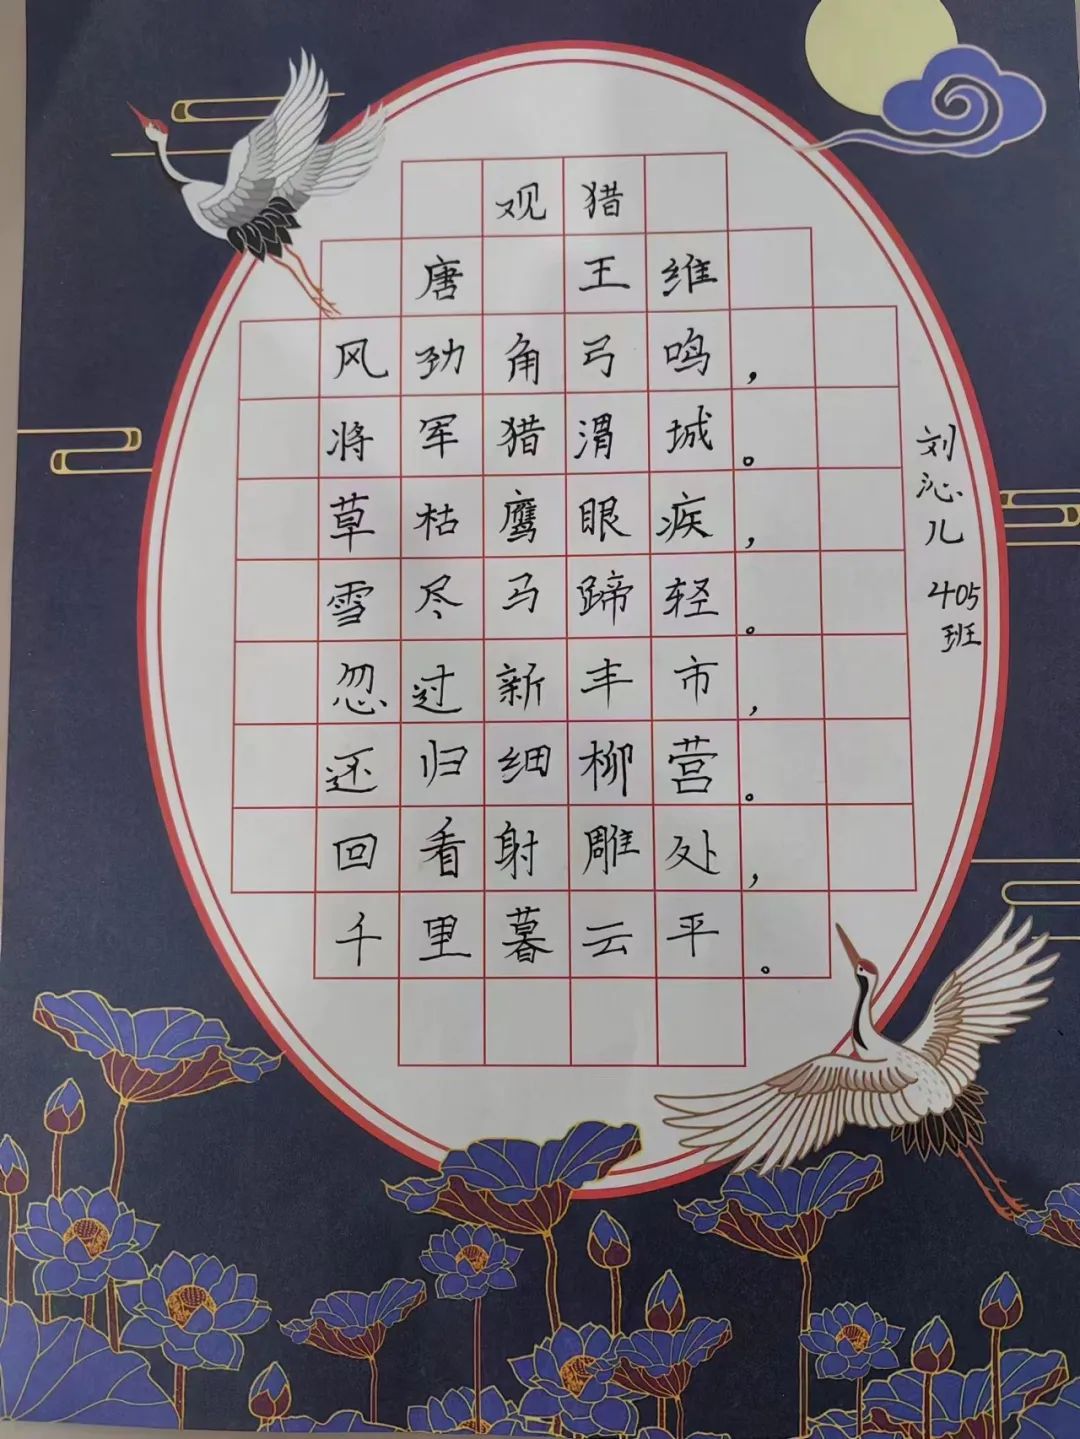 观猎
唐 王维
风劲角弓鸣，
将军猎渭城。
草枯鹰眼疾，
雪尽马蹄轻。
忽过新丰市，
还归细柳营。
回看射雕处，
千里暮云平。
刘沁儿
405
班